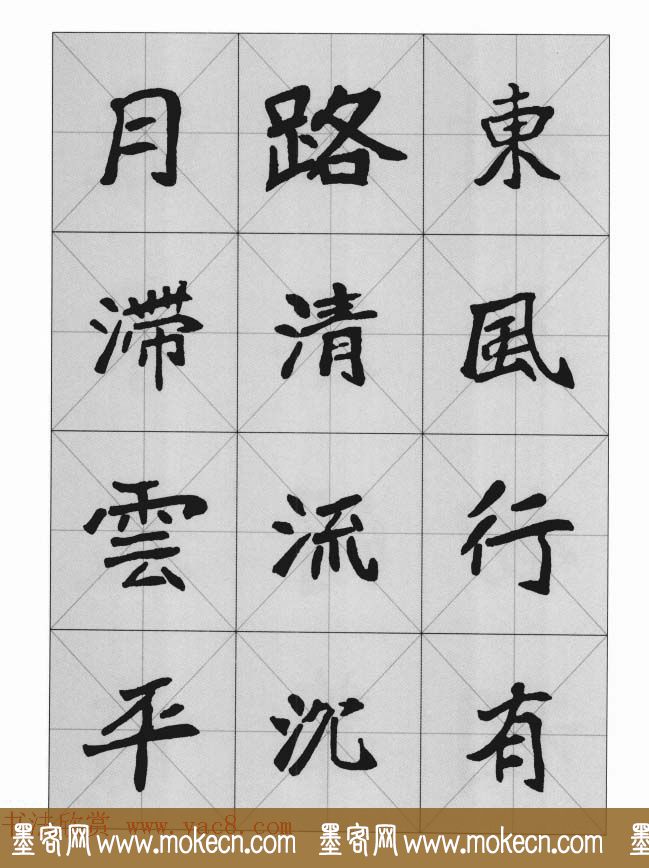 東風行有
路清流沉
月滞雲平
书法欣赏 www.yac8.com
墨客网 www.mokecn.com 墨客网 www.mokecn.com